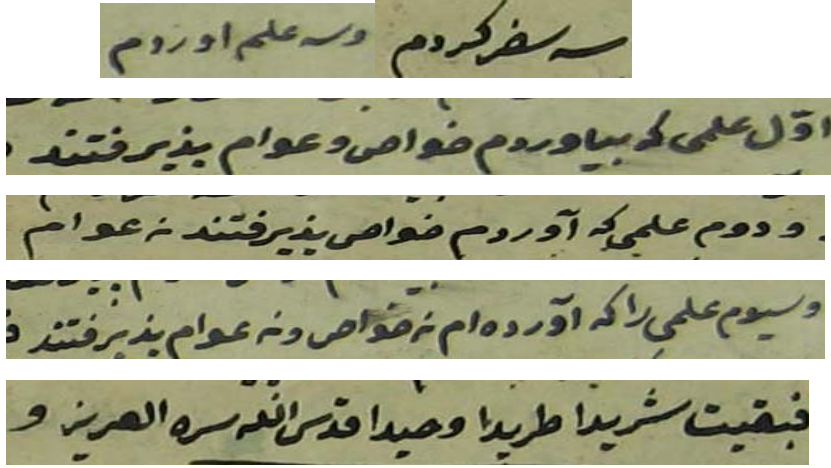 سه سفر کردم وسه علم اوردم
اوّل علمی که بیاوردم خواص و عوام پذیرفتند
و دوم علمی که آوردم خواص پذیرفتند نه عوام
وسیوم علمی را که آورده ام نه خواص ونه عوام پذیرفتند
فبقیت شریدا طریدا وحیدا قدس الله سره العریز و